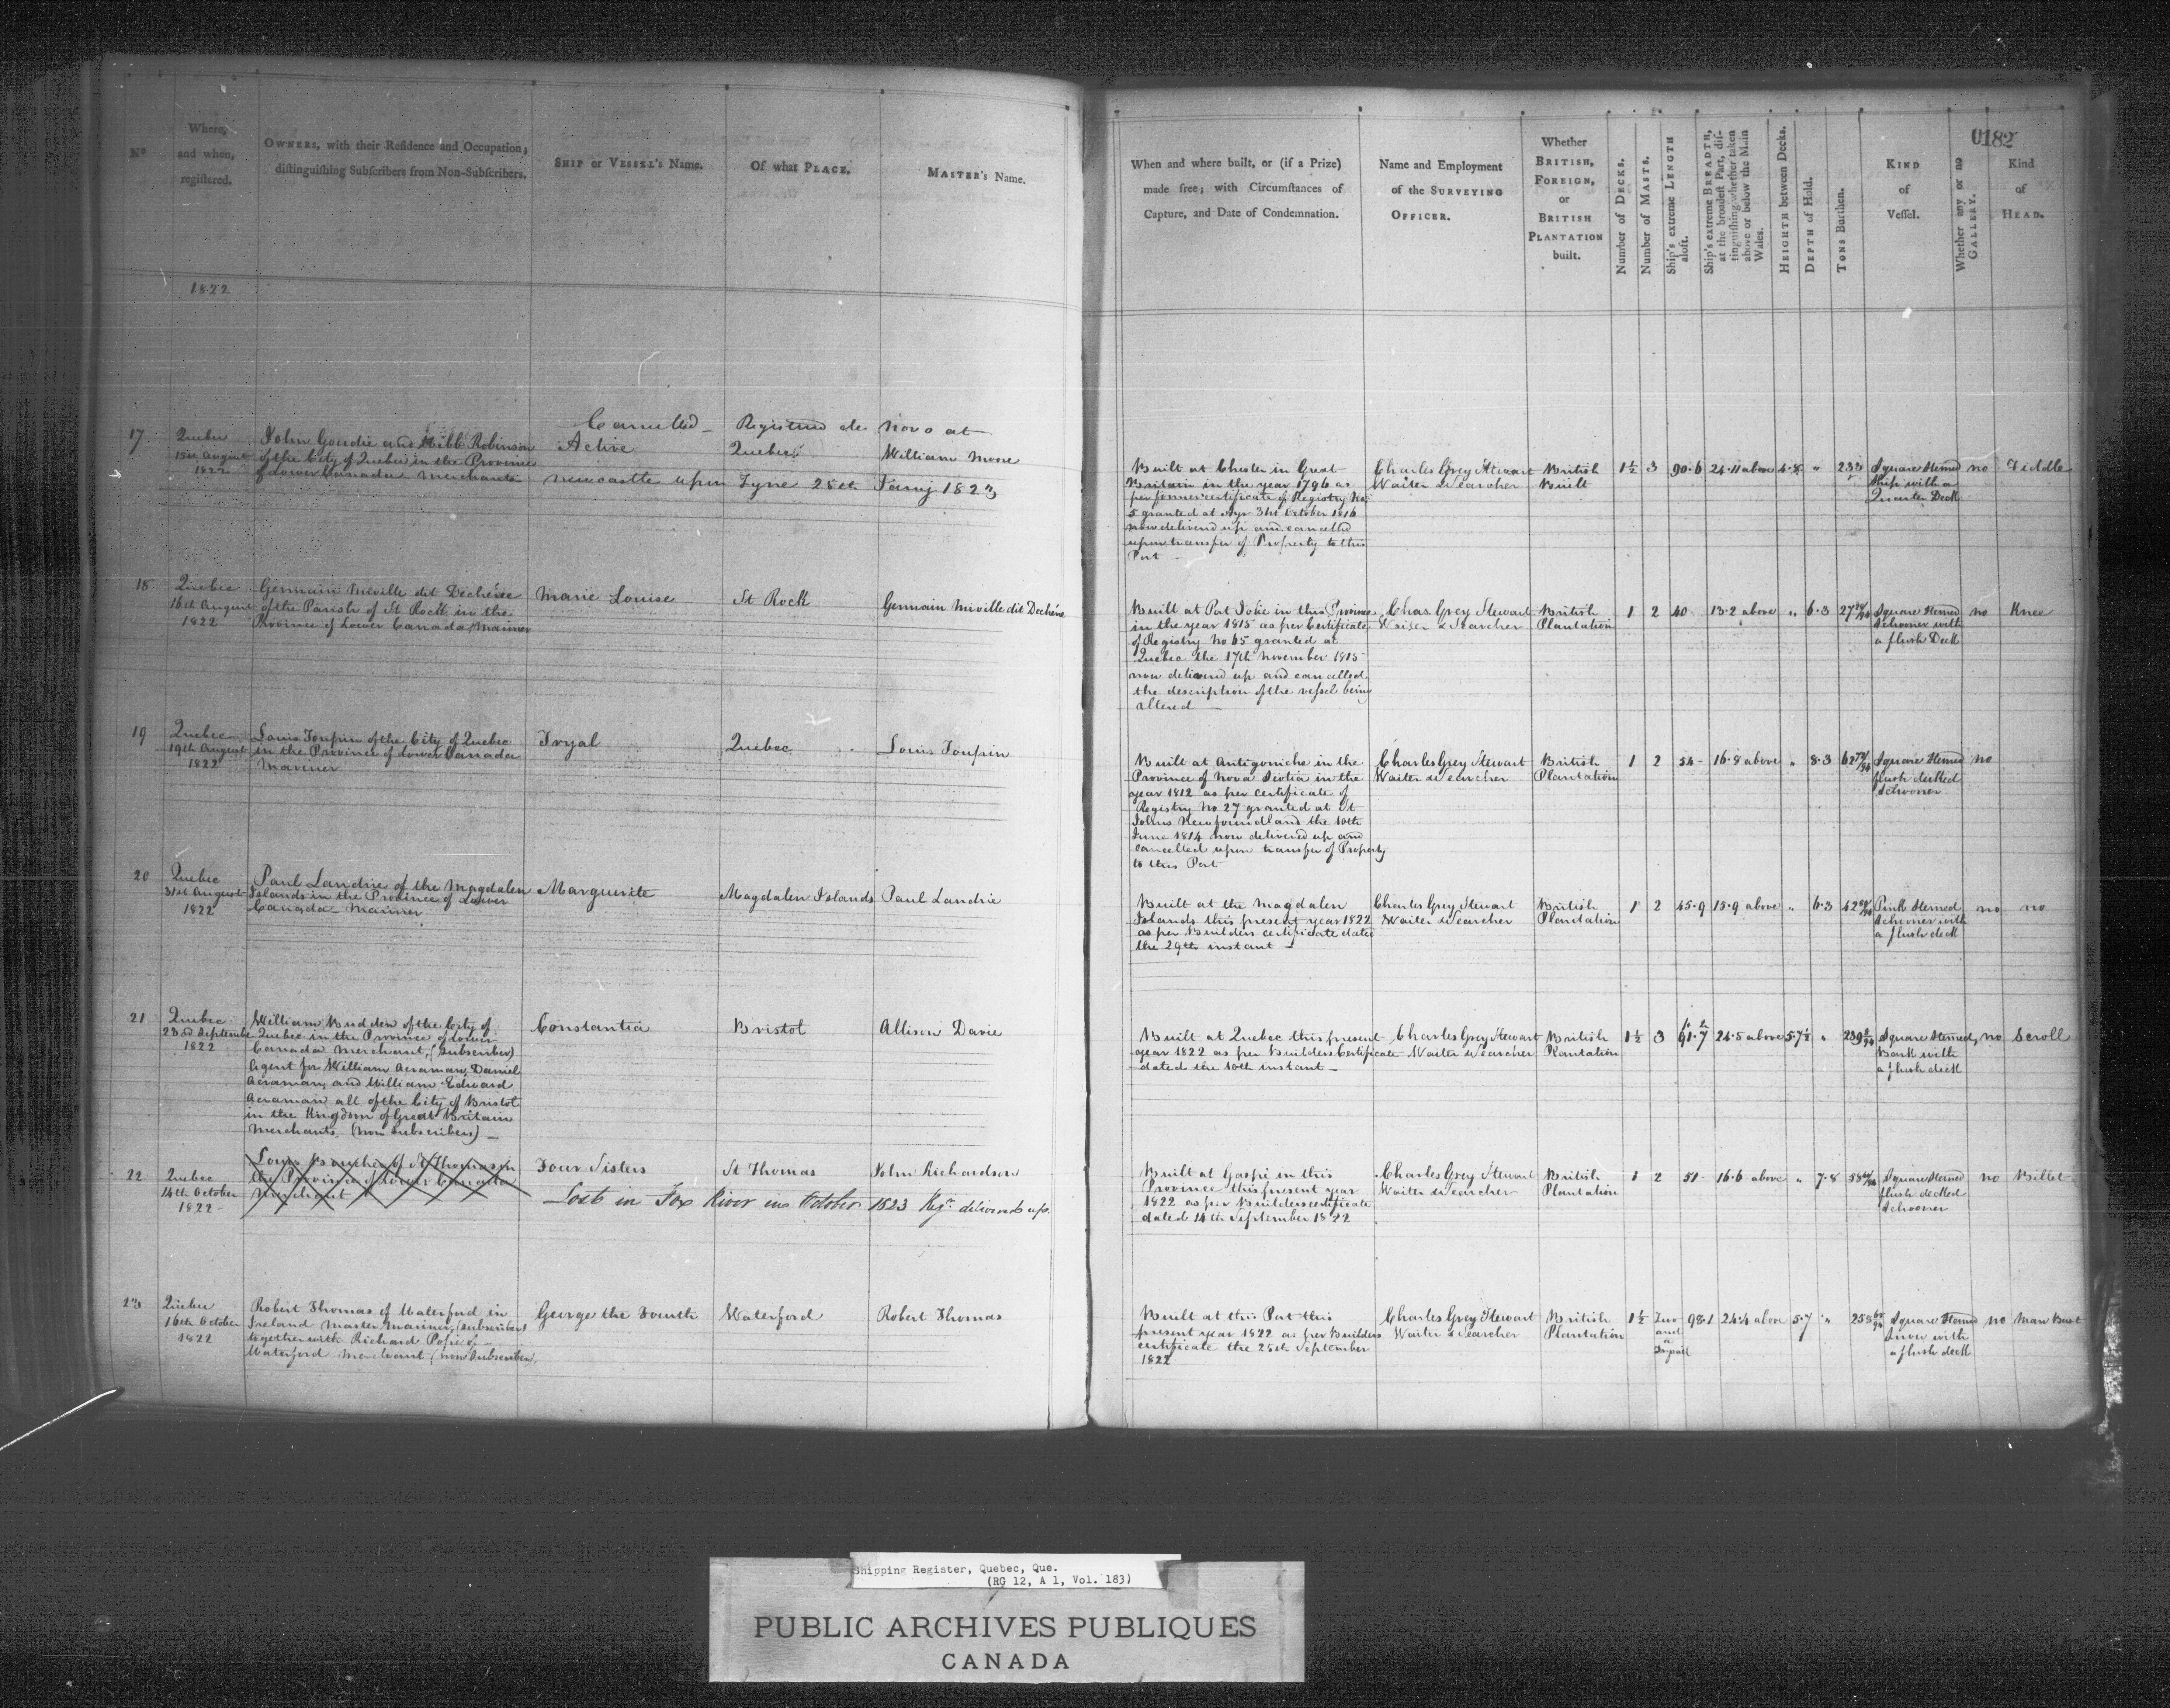 0182
Nº
Where, and when, registered.
OWNERS, with their Residence and Occupation; distinguishing Subscribers from Non-Subscribers.
SHIP or VESSEL's Name.
Of what PLACE.
MASTER's Name.
When and where built, or (if a Prize) made free; with Circumstances of Capture, and Date of Condemnation.
Name and Employment of the SURVEYING OFFICER.
Whether BRITISH, FOREIGN, or BRITISH PLANTATION built.
Number of DECKS.
Number of MASTS.
Ship's extreme LENGTH aloft.
Ship's extreme BREADTH, at the broadest Part, distinguishing whether taken above or below the Main Wales.
HEIGHTH between Decks.
DEPTH of Hold.
TONS Burthen.
KIND of Vessel.
Whether any or no GALLERY.
Kind of HEAD.
1822
17
Quebec
15th August
1822
John Goudie and Robinson
of the City of Quebec in the Province
of Lower Canada Merchants
Cancelled - Registered de novo at
Active
Quebec
William Moore
Newcastle upon Tyne 25th Jany 1823
Built at Chester in Great
Britain in the year 1796 as
per former certificate of Registry No
5 granted at Ayr 31st October 1816
now delivered up and cancelled
upon transfer of Property to this
Port -
Charles Grey Stewart
Waiter & Searcher
British
Built
1½ 3 90.6 24.11 above 4.8 " 233
Square Sterned
Ship with a
Quarter Deck
no
Fiddle
18
Quebec
16th August
1822
Germain Miville dit Dechéne
of the Parish of St Rock in the
Province of Lower Canada, Mariner
Marie Louise
St Rock
Germain Miville dit Dechéne
Built at Port Jolie in this Province
in the year 1815 as per Certificate
of Registry No 65 granted at
Quebec the 17th November 1815
now delivered up and cancelled
the description of the vessel being
altered -
Chas Grey Stewart
Waiter & Searcher
British
Plantation
1 2 40 13.2 above " 6.3 27
Square Sterned
Schooner with
a flush Deck
no
Knee
19
Quebec
19th August
1822
Louis Toupin of the City of Quebec
in the Province of Lower Canada
Mariner
Tryal
Quebec
Louis Toupin
Built at Antigoniche in the
Province of Nova Scotia in the
year 1812 as per certificate of
Registry No 27 granted at St
Johns Newfoundland the 10th
June 1814 now delivered up and
cancelled upon transfer of Property
to this Port
Charles Grey Stewart
Waiter & Searcher
British
Plantation
1 2 54 - 16.8 above " 8.3 62
Square Sterned
flush decked
Schooner
no
20
Quebec
31st August
1822
Paul Landrie of the Magdalen
Islands in the Province of Lower
Canada Mariner
Marguerite
Magdalen Islands
Paul Landrie
Built at the Magdalen
Islands this present year 1822
as per Builders certificate dated
the 29th instant -
Charles Grey Stewart
Waiter & Searcher
British
Plantation
1 2 45.9 15.9 above " 6.3 42
Pink Sterned
Schooner with
a flush deck
no
no
21
Quebec
23rd September
1822
William Budden of the City of
Quebec in the Province of Lower
Canada Merchant, (Subscriber)
Agent for William Acraman, Daniel
Acraman, and William Edward
Acraman all of the City of Bristol
in the Kingdom of Great Britain
Merchants, (non Subscribers) -
Constantia
Bristol
Allison Davie
Built at Quebec this present
year 1822 as per Builders Certificate
dated the 10th instant -
Charles Grey Stewart
Waiter & Searcher
British
Plantation
1½ 3 91.7 24.5 above 5.7½ " 239
Square Sterned
Bark with
a flush deck
no
Scroll
22
Quebec
14th October
1822
Louis of St Thomas in
the Province of Lower Canada
Merchant
Four Sisters
St Thomas
John Richardson
Lost in Fox River in October 1823 Regr. delivered up.
Built at Gaspé in this
Province this present year
1822 as per Builders certificate
dated 14th September 1822
Charles Grey Stewart
Waiter & Searcher
British
Plantation
1 2 51 - 16.6 above " 7.8 58
Square Sterned
flush decked
Schooner
no
Billet
23
Quebec
16th October
1822
Robert Thomas of Waterford in
Ireland Master Mariner, (subscriber)
together with Richard Pope of
Waterford Merchant, (non Subscriber)
George the Fourth
Waterford
Robert Thomas
Built at this Port this
present year 1822 as per Builders
certificate the 25th September
1822
Charles Grey Stewart
Waiter & Searcher
British
Plantation
1½
Two
and
a
98.1 24.4 above 5.7 " 258
Square Sterned
Snow with
a flush deck
no
Man Bust
Shipping Register, Quebec, Que.
(RG 12, A 1, Vol. 183)
PUBLIC ARCHIVES PUBLIQUES
CANADA